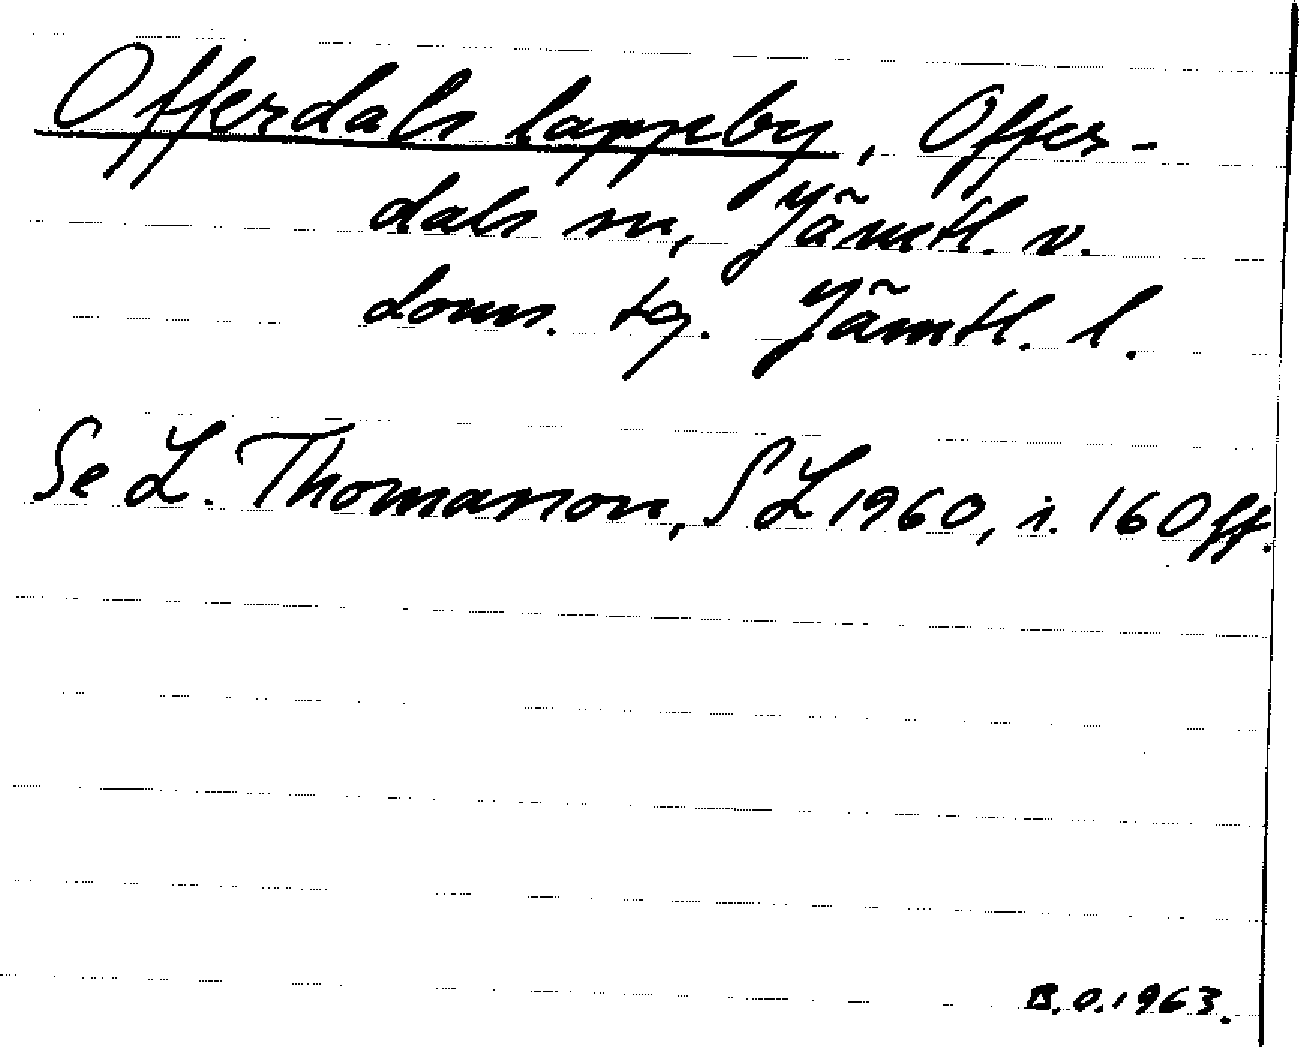 Offerdals lappby, Offer-
dals sn, Jämtl. v.
doms. tg. Jämtl. l.
Se L. Thomasson, SL 1960, s. 160 ff.
B.O. 1963.